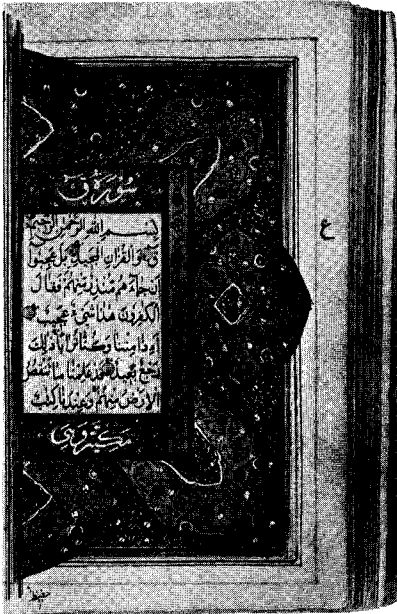 سورة ق
بسم الله الرحمن الرحيم
ق والقران المجيد بل عجبوا
ان جاءهم منذر منهم فقال
الكفرون هذا شيء عجيب
ءاذا متنا وكنا ترابا ذلك
رجع بعيد قد علمنا ما تنقص
الارض منهم وعندنا كتب
مكية وهي
ع